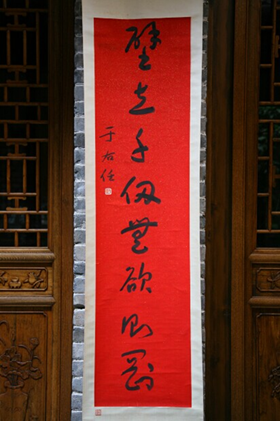 壁立千仭無欲則剛
于右任